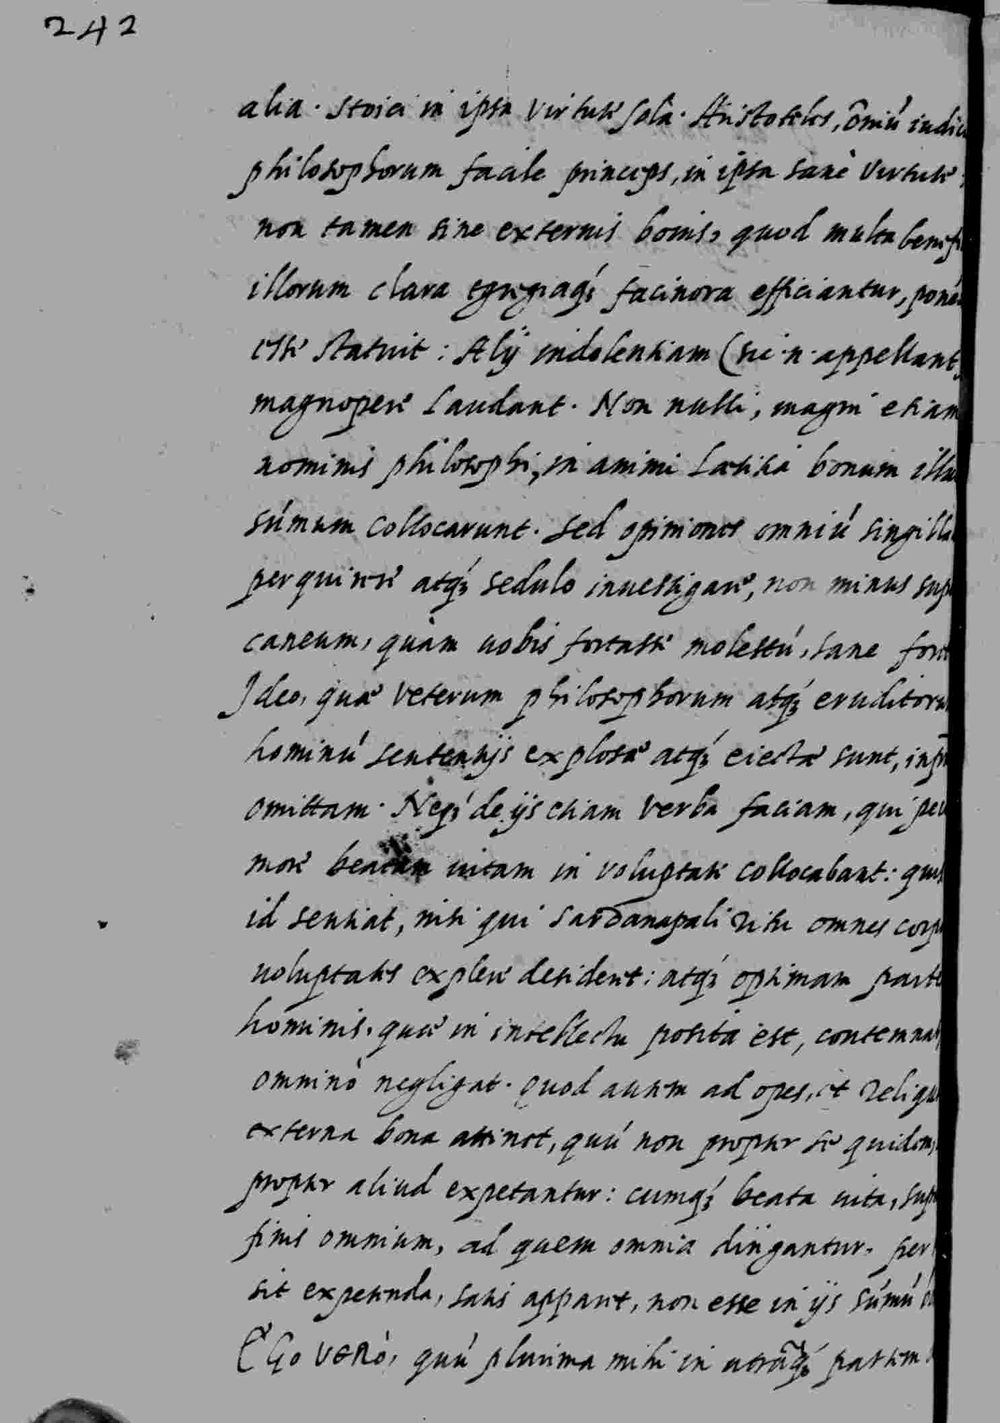 242
alia. Stoici in ipsa virtute sola. Aristoteles, õniũ iudic
philosophorum facile princeps, in ipsa sanè virtute
non tamen sine externis bonis, quod multa benefi
illorum clara egregiaq; facinora efficiantur, ponẽ
esse statuit: Alij indolentiam (sic .n. appellant
magnopere laudant. Non nulli, magni etiam
nominis philosophi, in animi lætitia bonum illu
súmum collocarunt. Sed opiniones omniú singilla
perquirere atq; sedulo inuestigare, non minus sup
caneum, quàm uobis fortasse molestú, sane foret
Ideo, quæ veterum philosophorum atq; eruditoru
hominú sententijs explosæ atq; eiectæ sunt, inpr
omittam. Neq; de ijs etiam verba faciam, qui pec
more beatam uitam in voluptate collocabant: quis
id sentiat, nisi qui Sardanapali ritu omnes corp
uoluptates explere desideret: atq; optimam parte
hominis, quæ in intellectu posita est, contemnat
omninò negligat. Quod autem ad opes, et reliqu
externa bona attinet, quú non propter se quidem,
propter aliud expetantur: cumq; beata uita, sup
finis omnium, ad quem omnia dirigantur, per
sit expetenda, satis apparet, non esse in ijs súmú
Ego verò, quú plurima mihi in utramq; partem